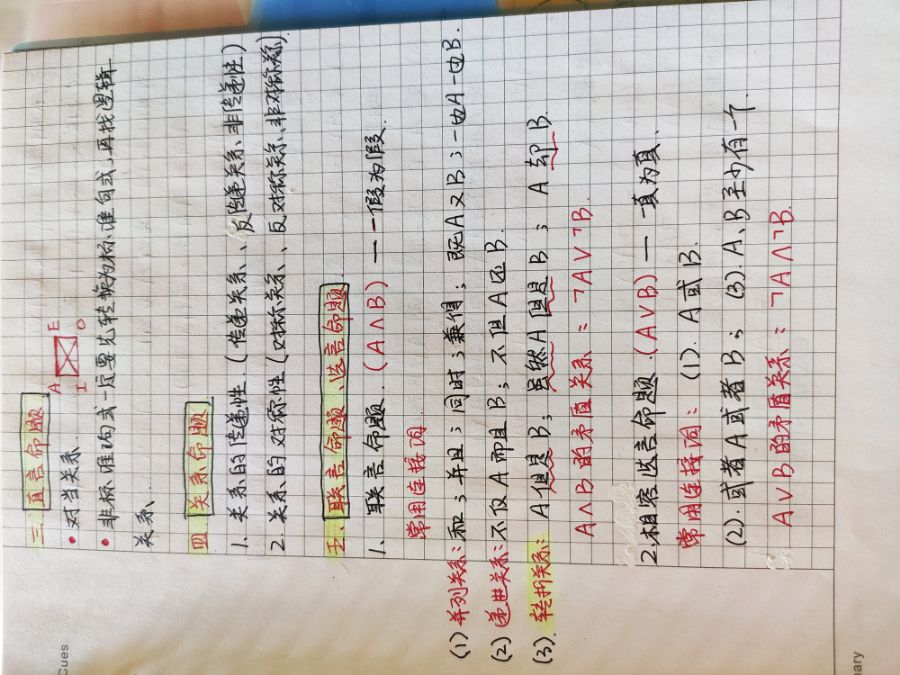 三、直言命题
• 对当关系
A E
I O
• 非标准句式一定要先转换为标准句式,再找逻辑
关系、
四、关系命题
1. 关系的传递性.(传递关系、反传递关系、非传递性)
2. 关系的对称性(对称关系、反对称关系、非对称关系)
五、联言命题、选言命题.
1、联言命题.(A∧B)——一假为假.
常用连接词.
(1)并列关系:和;并且;同时;兼得;既A又B;一边A一边B.
(2)递进关系:不仅A而且B;不但A还B.
(3).转折关系:A但是B;虽然A但是B;A却B.
A∧B的矛盾关系:¬A∨¬B.
2.相容选言命题.(A∨B)—一真为真.
常用连接词:(1).A或B.
(2).或者A或者B;(3).A、B至少有一个.
A∨B的矛盾关系:¬A∧¬B.
Cues
mary